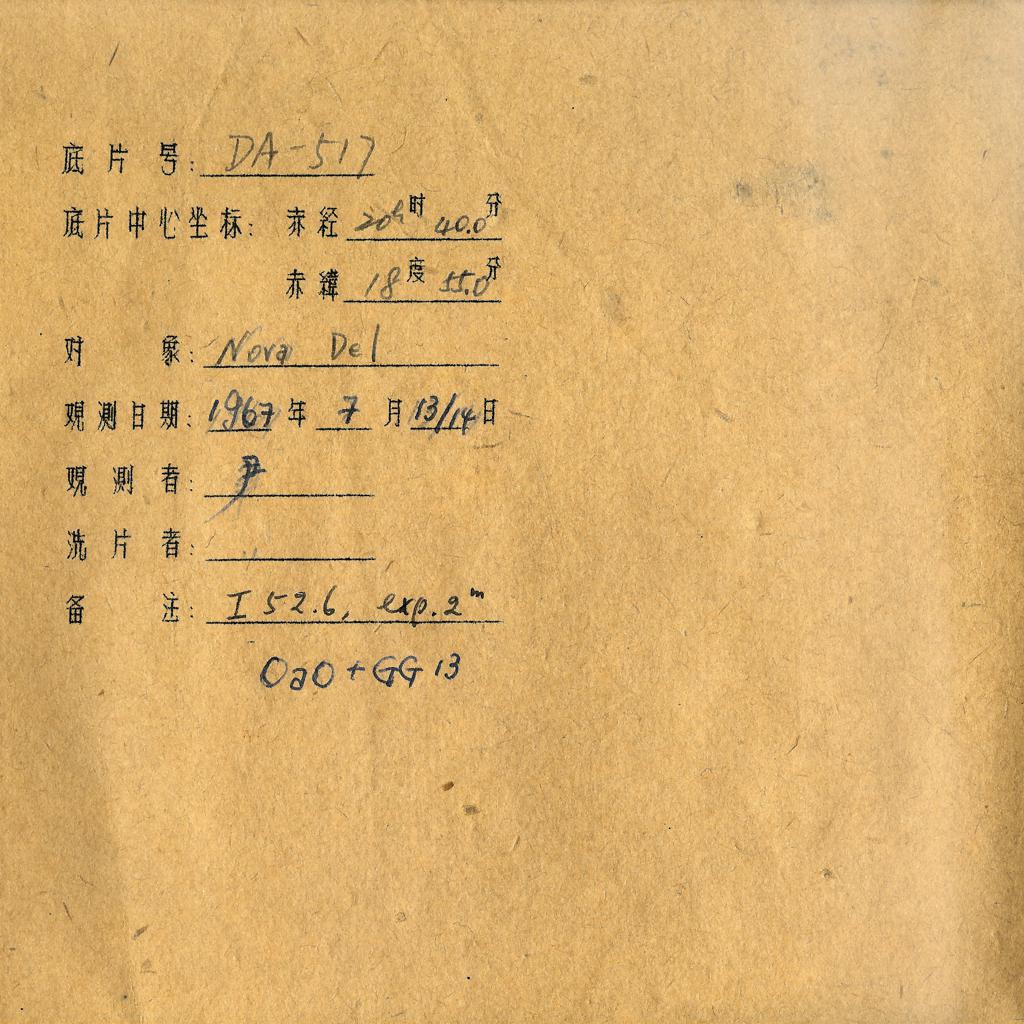 底片号: DA-517
底片中心坐标: 赤経 20h时 40.0分
赤緯 18度 55.0分
对象: Nova Del
观测日期: 1967年 7月 13/14日
观测者: 尹
洗片者:
备注: I 52.6, exp. 2m
OaO + GG 13